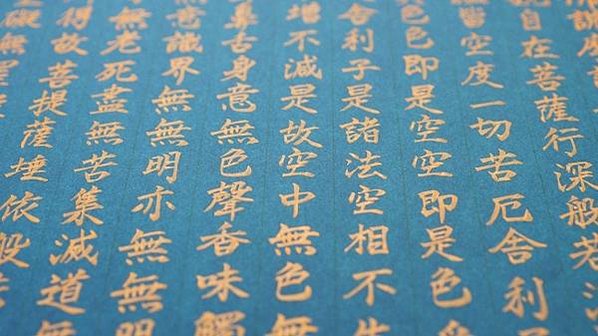 自在菩薩行深般若波
皆空度一切苦厄舍利
色色即是空空即是色
舍利子是諸法空相不生
增不減是故空中無色無
鼻舌身意無色聲香味觸
意識界無無明亦無無明
無老死盡無苦集滅道
得故菩提薩埵依般
礙無罣